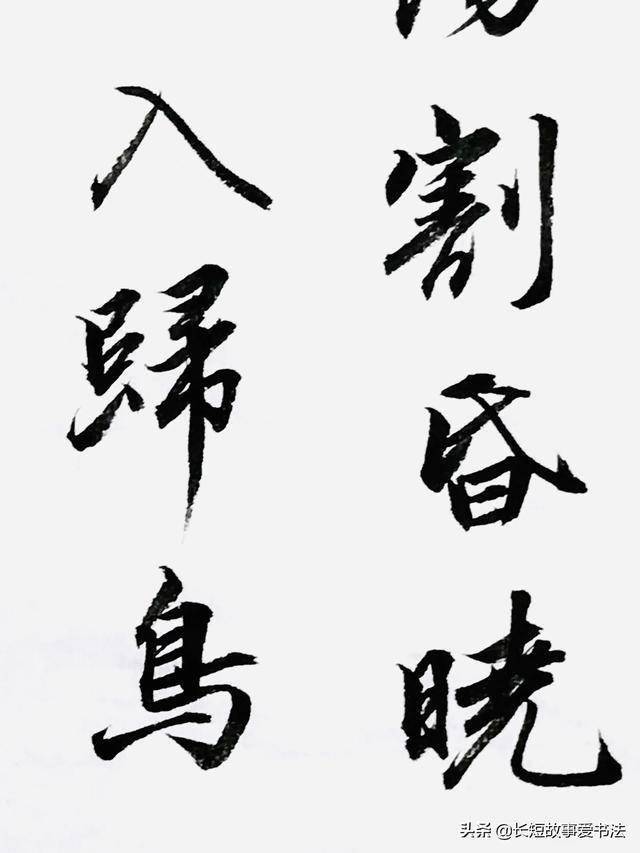 割昏晓
入歸鳥
头条 @长短故事爱书法